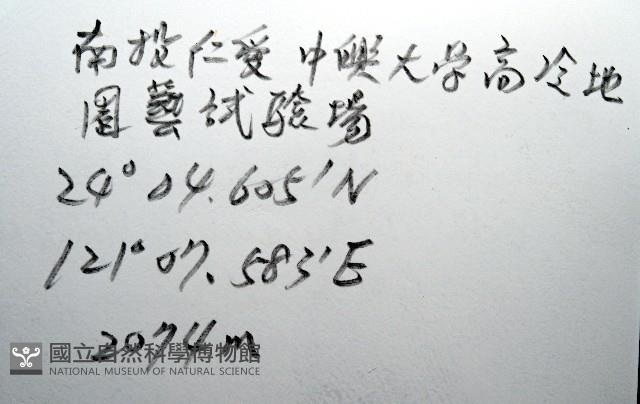 南投仁愛中興大学高冷地
園藝試驗場
24°04.605'N
121°07.583'E
2074m
國立自然科學博物館
NATIONAL MUSEUM OF NATURAL SCIENCE